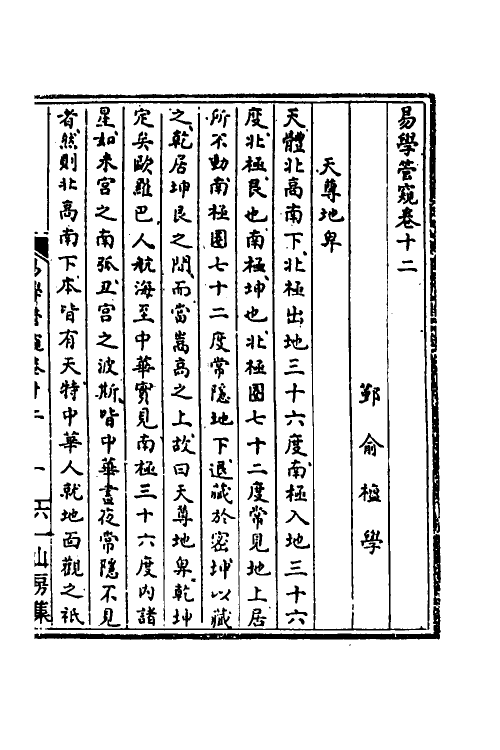 易學管窺卷十二
鄞俞檻學
天尊地卑
天體北高南下北極出地三十六度南極入地三十六
度北極艮也南極坤也北極圍七十二度常見地上居
所不動南極圍七十二度常隱地下退藏於密坤以藏
之乾居坤艮之間而當嵩高之上故曰天尊地卑乾坤
定矣歐羅巴人航海至中華實見南極三十六度內諸
星如未宮之南弧丑宮之波斯皆中華晝夜常隱不見
者然則北高南下本皆有天特中華人就地面觀之祇
易學管窺卷十二 一 六一山房集